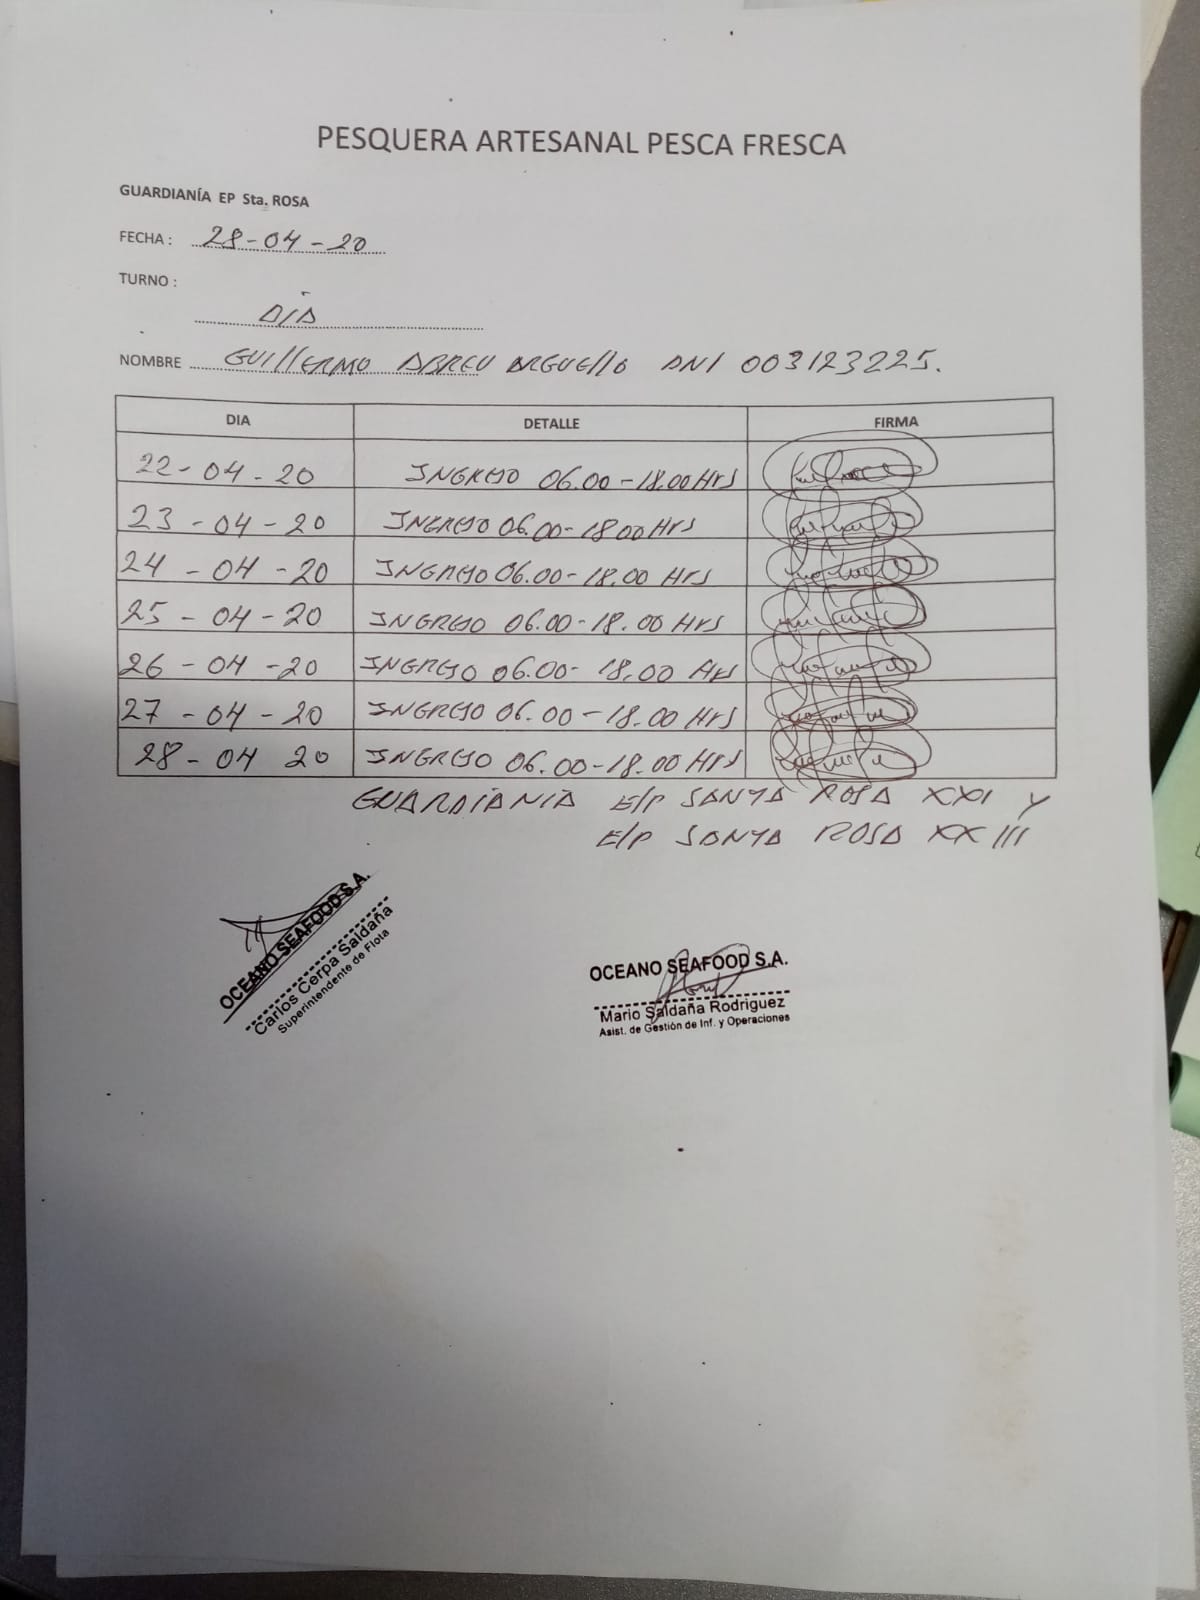 PESQUERA ARTESANAL PESCA FRESCA
GUARDIANÍA EP Sta. ROSA
FECHA : 28-04-20
TURNO :
DIA
NOMBRE GUILLERMO ABREU ARGUELLO DNI 003123225.
DIA DETALLE FIRMA
22-04-20 INGRESO 06.00-18.00 Hrs
23-04-20 INGRESO 06.00-18.00 Hrs
24-04-20 INGRESO 06.00-18.00 Hrs
25-04-20 INGRESO 06.00-18.00 Hrs
26-04-20 INGRESO 06.00-18.00 Hrs
27-04-20 INGRESO 06.00-18.00 Hrs
28-04 20 INGRESO 06.00-18.00 Hrs
GUARDIANIA E/P SANTA ROSA XXI Y
E/P SANTA ROSA XXIII
OCEANO SEAFOOD S.A.
Carlos Cerpa Saldaña
Superintendente de Flota
OCEANO SEAFOOD S.A.
Mario Saldaña Rodriguez
Asist. de Gestión de Inf. y Operaciones